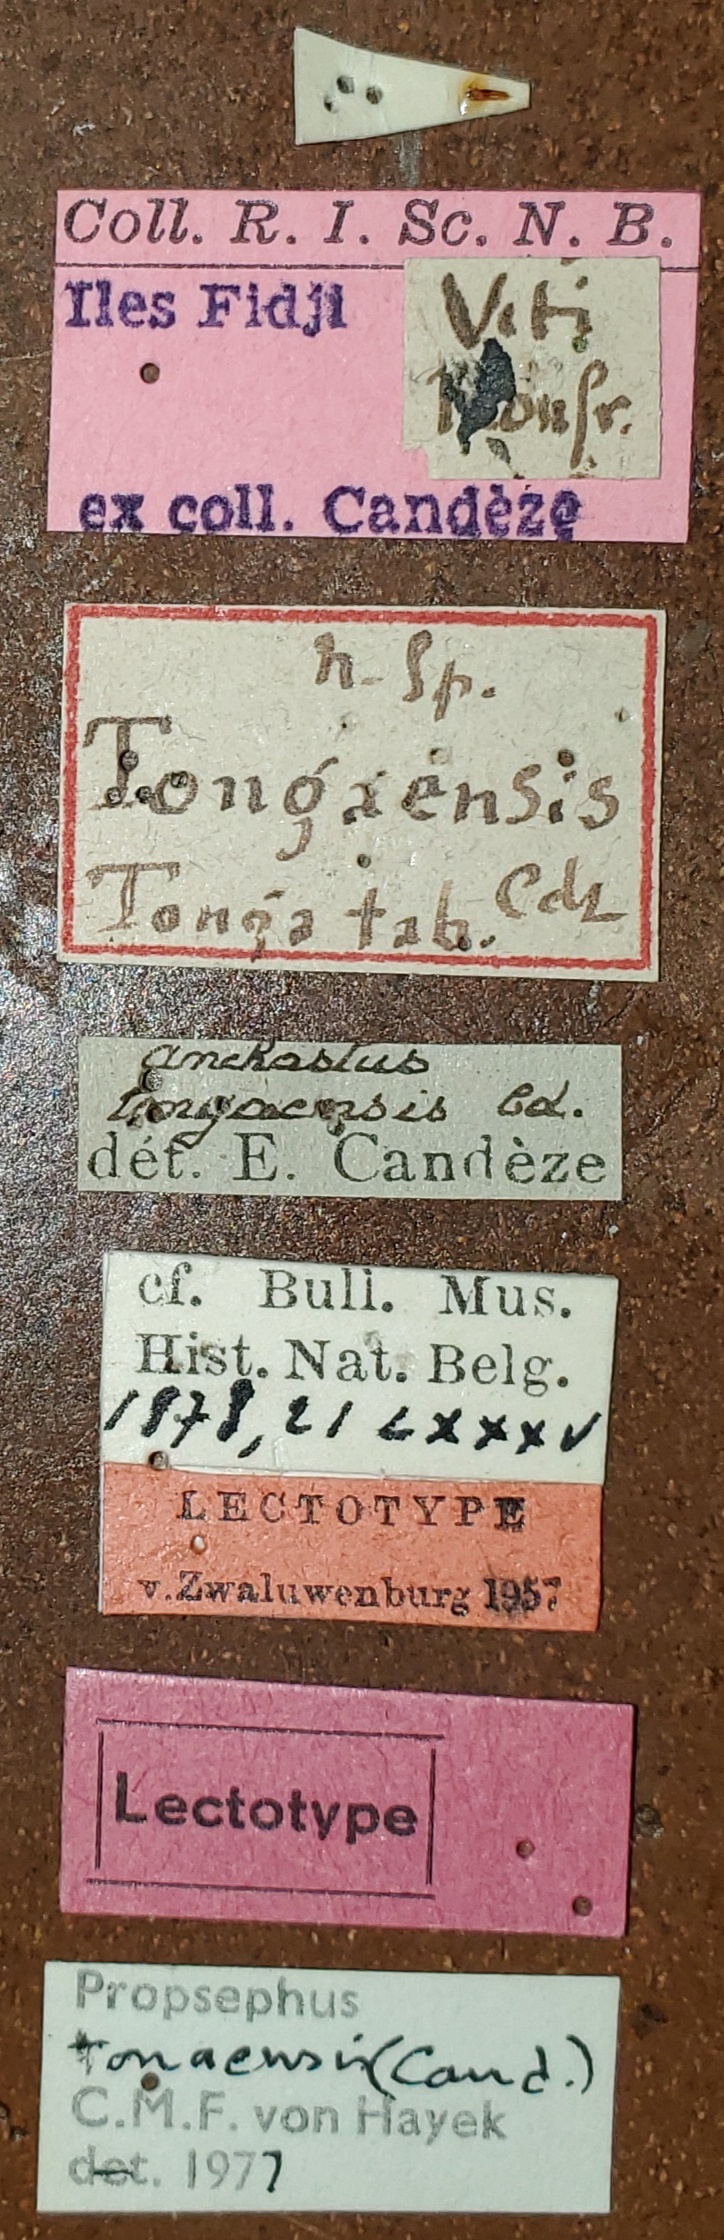 Coll. R. I. Sc. N. B.
Iles Fidji
Viti
ex coll. Candèze
n. Sp.
Tongaensis
Tonga tab. Cdz
anchastus
tongaensis Cd.
dét. E. Candèze
cf. Bull. Mus.
Hist. Nat. Belg.
1878, 21 LXXXV
LECTOTYPE
v. Zwaluwenburg 1957
Lectotype
Propsephus
tongaensis (Cand.)
C.M.F. von Hayek
det. 1977